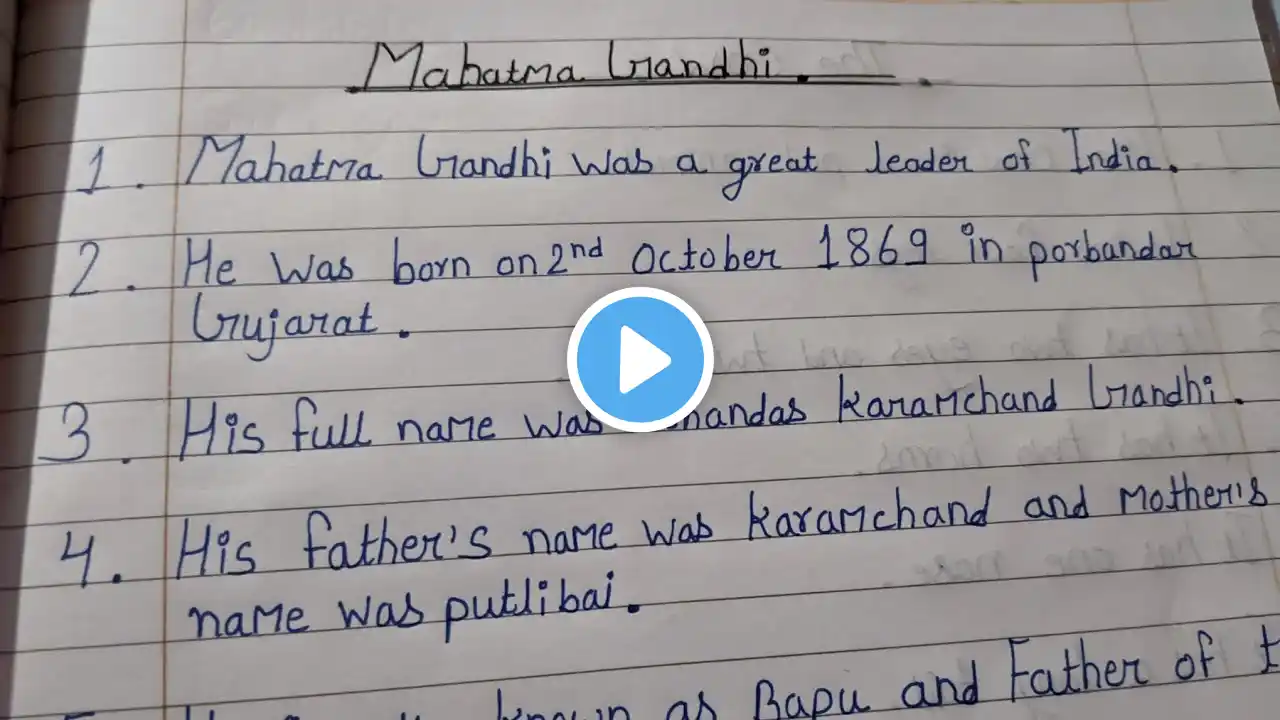 Mahatma Gandhi.
1. Mahatma Gandhi was a great leader of India.
2. He was born on 2nd October 1869 in porbandar
Gujarat.
3. His full name was Karamchand Gandhi.
4. His father's name was Karamchand and Mother's
name was putlibai.
known as Bapu and Father of